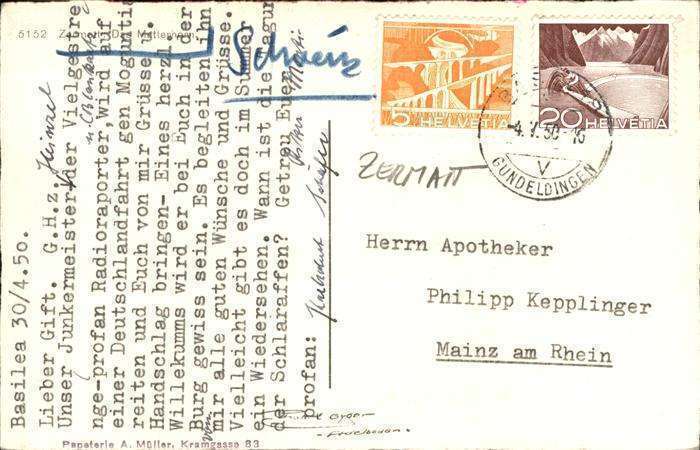 5152 Zermatt
Schweiz
Basilea 30/4.50.
Lieber Gift. G.H.z.
Unser Junkermeister der Vielgestre
nge-profan Radioraporter Wird auf
einer Deutschlandfahrt gen Moguntia
reiten und Euch von mir Grüsse u.
Handschlag bringen- Eines herzl.
Willekumms wird er bei Euch in der
Burg gewiss sein. Es begleiten ihn
von mir alle guten Wünsche und Grüsse.
Vielleicht gibt es doch im Summer
ein Wiedersehen. Wann ist die Sagun
der Schlaraffen? Getreu Euer
profan:
5 HELVETIA
20 HELVETIA
-4.V.50-15
V
GUNDELDINGEN
ZERMATT
Herrn Apotheker
Philipp Kepplinger
Mainz am Rhein
Papeterie A. Müller, Kramgasse 83